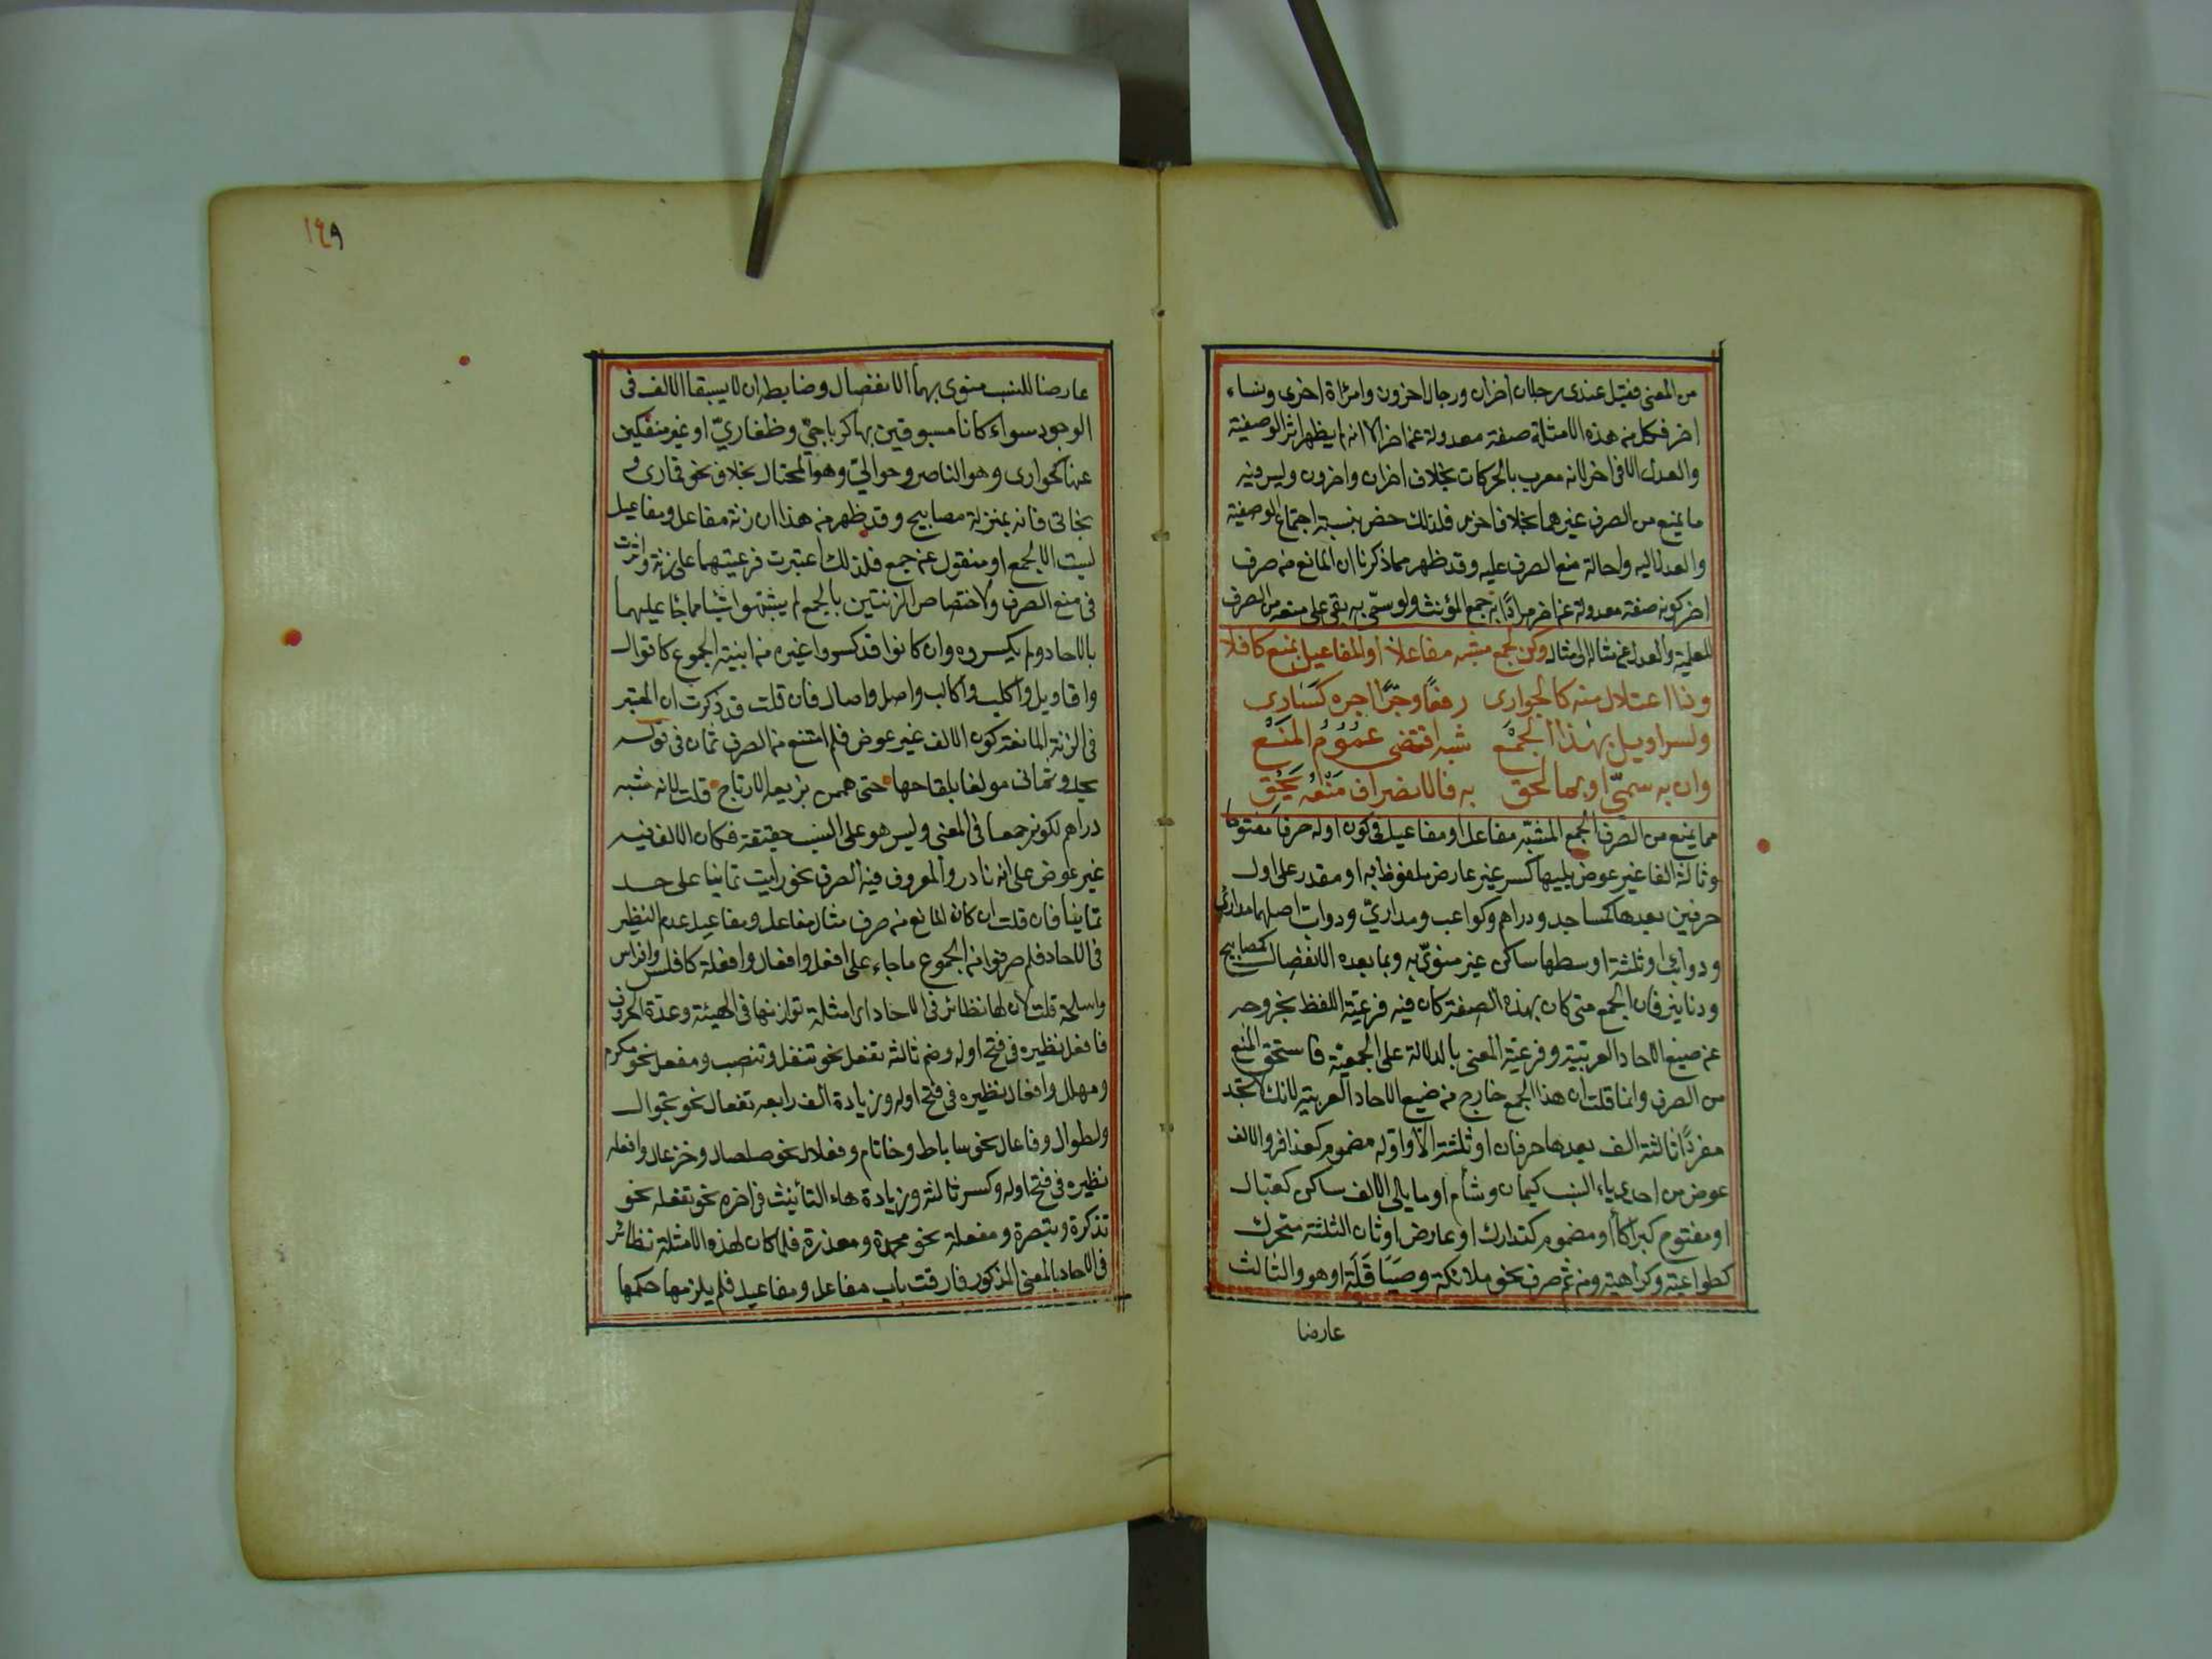 من المعنى فقيل عندى رجلان اخران ورجال اخرون وامراة اخرى ونساء
اخر فكل من هذه الامثلة صفة معدولة عن اخر الا انه لم يظهر اثر الوصفية
والعدل الا فى اخر لانه معرب بالحركات بخلاف اخران واخرون وليس فيه
ما يمنع من الصرف غيرهما بخلاف اخرى فلذلك خص بنسبة اجتماع الوصفية
والعدل اليه واحالة منع الصرف عليه وقد ظهر مما ذكرنا ان المانع من صرف
اخر كونه صفة معدولة عن اخر مرادًا به جمع المؤنث ولو سمّى به بقى على منعه من الصرف
للعلمية والعدل عن مثال الى مثال وكن لجمع مشبه مفاعلا او المفاعيل بمنع كافلا
وذا اعتلال منه كالجوارى رفعًا وجرًّا اجره كسارى
ولسراويل بهذا الجمع شبه اقتضى عموم المنع
وان به سمّى او بما لحق به فالانصراف منعه يحق
مما يمنع من الصرف الجمع المشبه مفاعل او مفاعيل فى كون اوله حرفا مفتوحا
وثالثه الفا غير عوض يليها كسر غير عارض ملفوظ به او مقدر على اول
حرفين بعدها كمساجد ودراهم وكواعب ومدارىّ ودوابّ اصلهما مدارى
ودوابب او ثلثة اوسطها ساكن غير منوىّ به وبما بعده الانفصال كمصابيح
ودنانير فان الجمع متى كان بهذه الصفة كان فيه فرعية اللفظ بخروجه
عن صيغ الاحاد العربية وفرعية المعنى بالدلالة على الجمعية فاستحق المنع
من الصرف وانما قلت ان هذا الجمع خارج من صيغ الاحاد العربية لانك لا تجد
مفردًا ثالثه الف بعدها حرفان او ثلثة الا واوله مضموم كعذافر والالف
عوض من احدى ياء النسب كيمان وشام او ما يلى الالف ساكن كعبال
او مفتوح كبراكا او مضموم كتدارك او عارض او ثان الثلثة متحرك
كطواعية وكراهية ومن ثم صرف نحو ملائكة وصياقلة او هو والثالث
عارضا
١٤٩
عارضا للنسب منوى بهما الانفصال وضابطه ان لا يسبقا الالف فى
الوجود سواء كانا مسبوقين بها كرباحىّ وظفارىّ او غير منفكين
عنها كحوارى وهو الناصر وحوالى وهو المحتال بخلاف نحو قمارى و
بخاتى فانه بمنزلة مصابيح وقد ظهر من هذا ان زنة مفاعل ومفاعيل
ليست الا لجمع او منقول عن جمع فلذلك اعتبرت فرعيتهما على زنة واثرت
فى منع الصرف ولاختصاص الزنتين بالجمع لم يشبهوا شيئا مما جا عليهما
بالاحاد ولم يكسروه وان كانوا قد كسروا غيره من ابنية الجموع كاقوال
واقاويل واكلب واكالب واصل واصال فان قلت قد ذكرت ان المعتبر
فى الزنة المانعة كون الالف غير عوض فلم امتنع من الصرف ثمان فى قوله
يحدو ثمانى مولعا بلقاحها حتى هممن بزيعه الارتاج قلت لانه شبه
دراهم لكونه جمعا فى المعنى وليس هو على النسب حقيقة فكان الالف فيه
غير عوض على انه نادر والمعروف فيه الصرف نحو رايت ثمانيا على حد
ثمانيا فان قلت ان كان المانع من صرف مثال مفاعل ومفاعيل عدم النظير
فى الاحاد فلم صرفوا من الجموع ما جاء على افعل وافعال وافعلة كافلس وافراس
واسلحة قلت لان لها نظائر فى الاحاد اى امثلة توازنها فى الهيئة وعدة الحروف
فافعل نظيره فى فتح اوله وضم ثالثه تفعل نحو تنفل وتنضب ومفعل نحو مكرم
ومهلل وافعال نظيره فى فتح اوله وزيادة الف رابعه تفعال نحو تجوال
ولطوال وفاعال نحو ساباط وخاتام وفعلال نحو صلصال وخزعال وافعله
نظيره فى فتح اوله وكسر ثالثه وزيادة هاء التأنيث فى اخره نحو تفعله نحو
تذكرة وتبصرة ومفعلة نحو محمدة ومعذرة فلما كان لهذه الامثلة نظائر
فى الاحاد بالمعنى المذكور فارقت باب مفاعل ومفاعيل فلم يلزمها حكمها